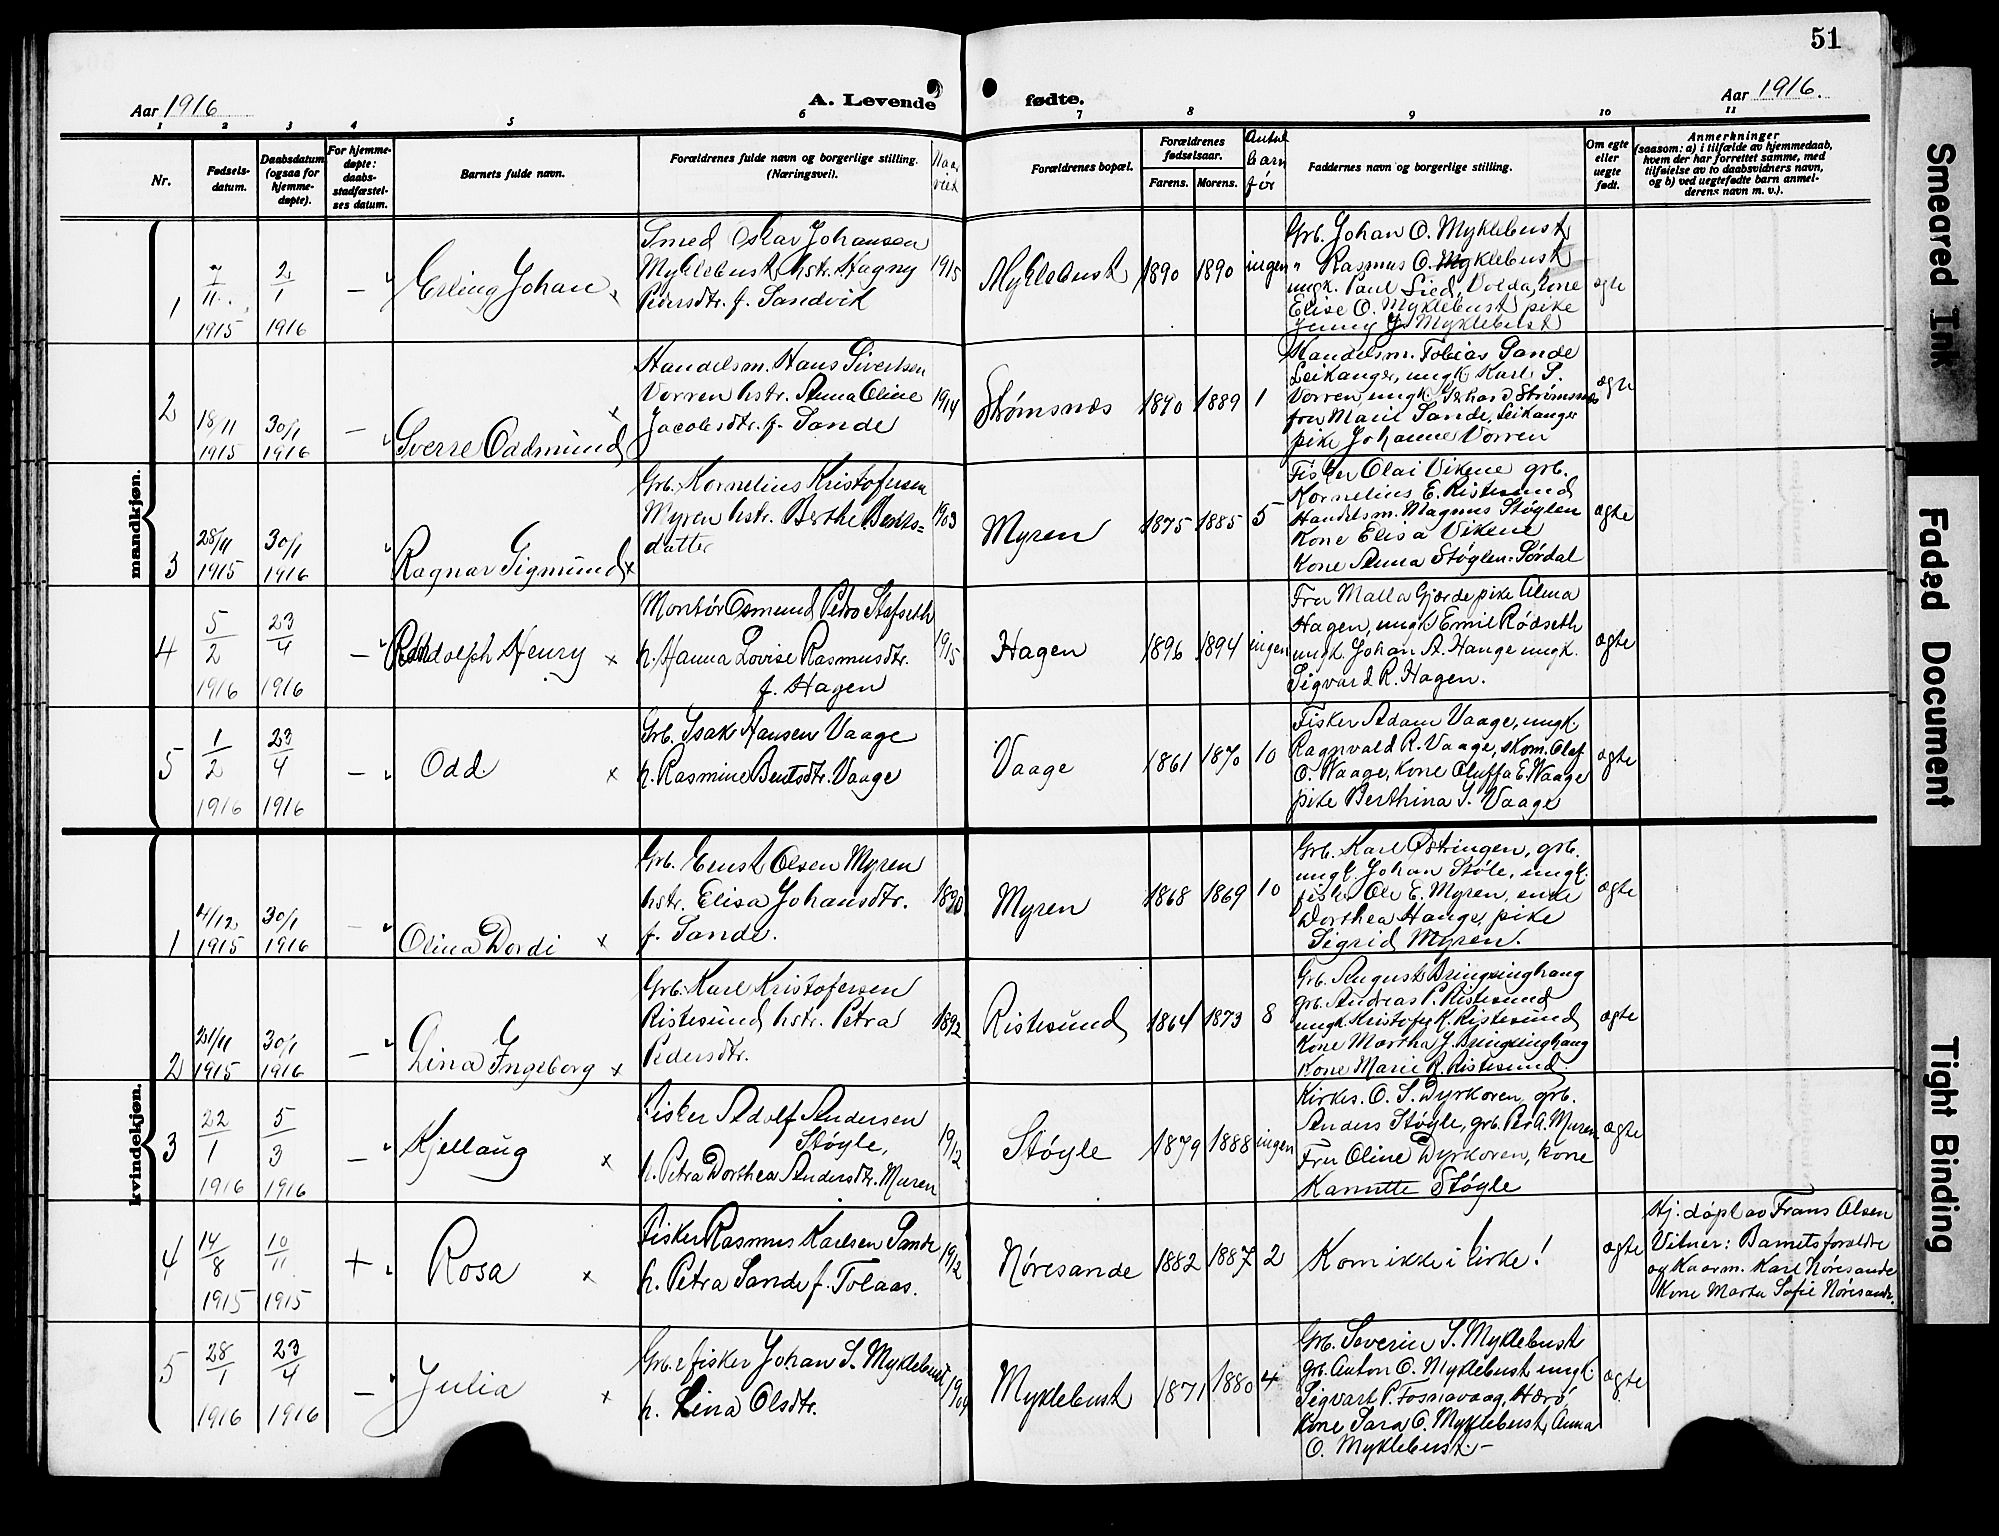 51
Aar 1916
A. Levende fødte.
Aar 1916.
1 2 3 4 5 6 7 8 9 10 11
Nr.
Fødsels-
datum.
Daabsdatum
(ogsaa for
hjemme-
døpte).
For hjemme-
døpte:
daabs-
stadfæstel-
ses datum.
Barnets fulde navn.
Forældrenes fulde navn og borgerlige stilling.
(Næringsvei).
Naar
viet
Forældrenes bopæl.
Forældrenes
fødselsaar.
Farens. Morens.
Antal
barn
før
Faddernes navn og borgerlige stilling.
Om egte
eller
uegte
født.
Anmerkninger
(saasom: a) i tilfælde av hjemmedaab,
hvem der har forrettet samme, med
tilføielse av to daabsvidners navn,
og b) ved uegtefødte barn anmel-
derens navn m. v.).
mandkjøn.
1
7/11
1915
2/1
1916
–
Erling Johan
Smed Oskar Johansen
Myklebust, hstr. Hagny
Pedersdtr. f. Sandvik
1915
Myklebust
1890
1890
ingen
Grb. Johan O. Myklebust
" Rasmus O. Myklebust
ungk. Paul Lied, Volda, kone
Elise O. Myklebust, pike
Jenny J. Myklebust
ægte
2
18/11
1915
30/1
1916
–
Sverre Oddmund
Handelsm. Hans Sivertsen
Vorren hstr. Anna Oline
Jacobsdtr. f. Sande
1914
Strømsnes
1890
1889
1
Handelsm. Tobias Sande
Leikanger, ungk. Karl S.
Vorren, ungk. Gerhard Strømsnes
fru Marie Sande, Leikanger
pike Johanne Vorren
ægte
3
28/11
1915
30/1
1916
Ragnar Sigmund
Grb. Kornelius Kristofersen
Myren hstr. Berthe Bents-
datter
1903
Myren
1875
1885
5
Fisker Olai Vikene grb.
Kornelius E. Ristesund
Handelsm. Magnus Støylen
Kone Elisa Vikene
Kone Anna Støylen-Sørdal
ægte
4
5/2
1916
23/4
1916
–
Randolph Henry
Montør Osmund Pedro Stafseth
h. Hanna Lovise Rasmusdtr.
f. Hagen
1915
Hagen
1896
1894
ingen
Fru Malla Gjærde pike Alma
Hagen, ungk. Emil Rødseth
ungk. Johan A. Hauge ungk.
Sigvard R. Hagen.
ægte
5
1/2
1916
23/4
1916
–
Odd.
Grb. Isak Hansen Vaage
h. Rasmine Bentsdtr. Vaage
Vaage
1861
1870
10
Fisker Adam Vaage, ungk.
Ragnvald R. Vaage, skom. Olaf
O. Vaage, Kone Oluffa E. Vaage
pike Berthina I. Vaage
ægte
kvindekjøn.
1
4/12
1915
30/1
1916
–
Olina Dordi
Grb. Ernst Olsen Myren
hstr. Elisa Johansdtr.
f. Sande.
1890
Myren
1868
1869
10
Grb. Karl Østringen, grb.
ungk. Johan Støle, ungk.
fisker Ole E. Myren, enke
Dorthea Hauge, pike
Sigrid Myren.
ægte
2
21/11
1915
30/1
1916
–
Lina Ingeborg
Grb. Karl Kristofersen
Ristesund, hstr. Petra
Pedersdtr.
1892
Ristesund
1864
1873
8
Grb. August Bringsinghaug
grb. Andreas P. Ristesund
ungk. Kristofer K. Ristesund
Kone Martha J. Bringsinghaug
Kone Marie R. Ristesund
ægte
3
22/1
1916
5/3
1916
–
Kjellaug
Fisker Adolf Andersen
Støyle,
h. Petra Dorthea Andersdtr. Muren
1912
Støyle
1879
1888
ingen
Kirkes. O. S. Dyrkoren, grb.
Anders Støyle, grb. Per A. Muren
Fru Oline Dyrkoren, kone
Kanutte Støyle
ægte
4
14/8
1915
10/11
1915
+
Rosa
Fisker Rasmus Karlsen Sande
h. Petra Sande f. Tolaas.
1912
Nøresande
1882
1887
2
Kom ikke i kirke!
ægte
Hj. døpt av Frans Olsen
Vitner: Barnets forældre
og Kaarm. Karl Nøresande
Kone Marta Sofie Nøresande.
5
28/1
1916
23/4
1916
–
Julia
Grb. & fisker Johan S. Myklebust
h. Lina Olsdtr.
1909
Myklebust
1871
1880
4
Grb. Severin S. Myklebust
grb. Anton O. Myklebust ungk.
Sigvart P. Fosnavaag, Herø
Kone Sara O. Myklebust, Anna
O. Myklebust.–
ægte
Smeared Ink
Faded Document
Tight Binding